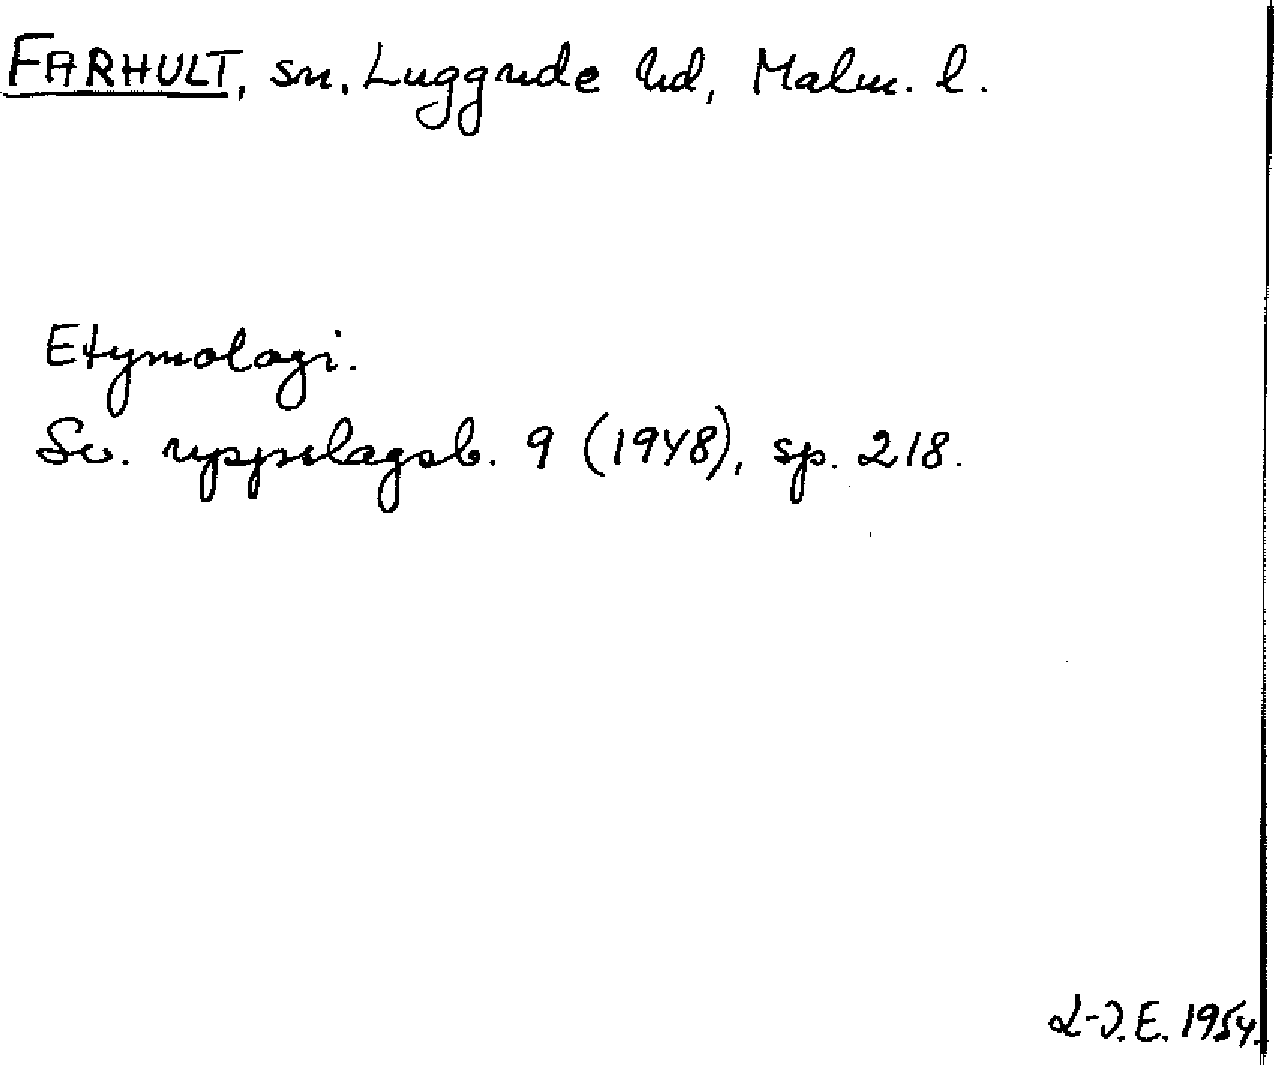 FARHULT, sn, Luggude hd, Malm. l.
Etymologi.
Sv. uppslagsb. 9 (1948), sp. 218.
L-J.E. 1954.